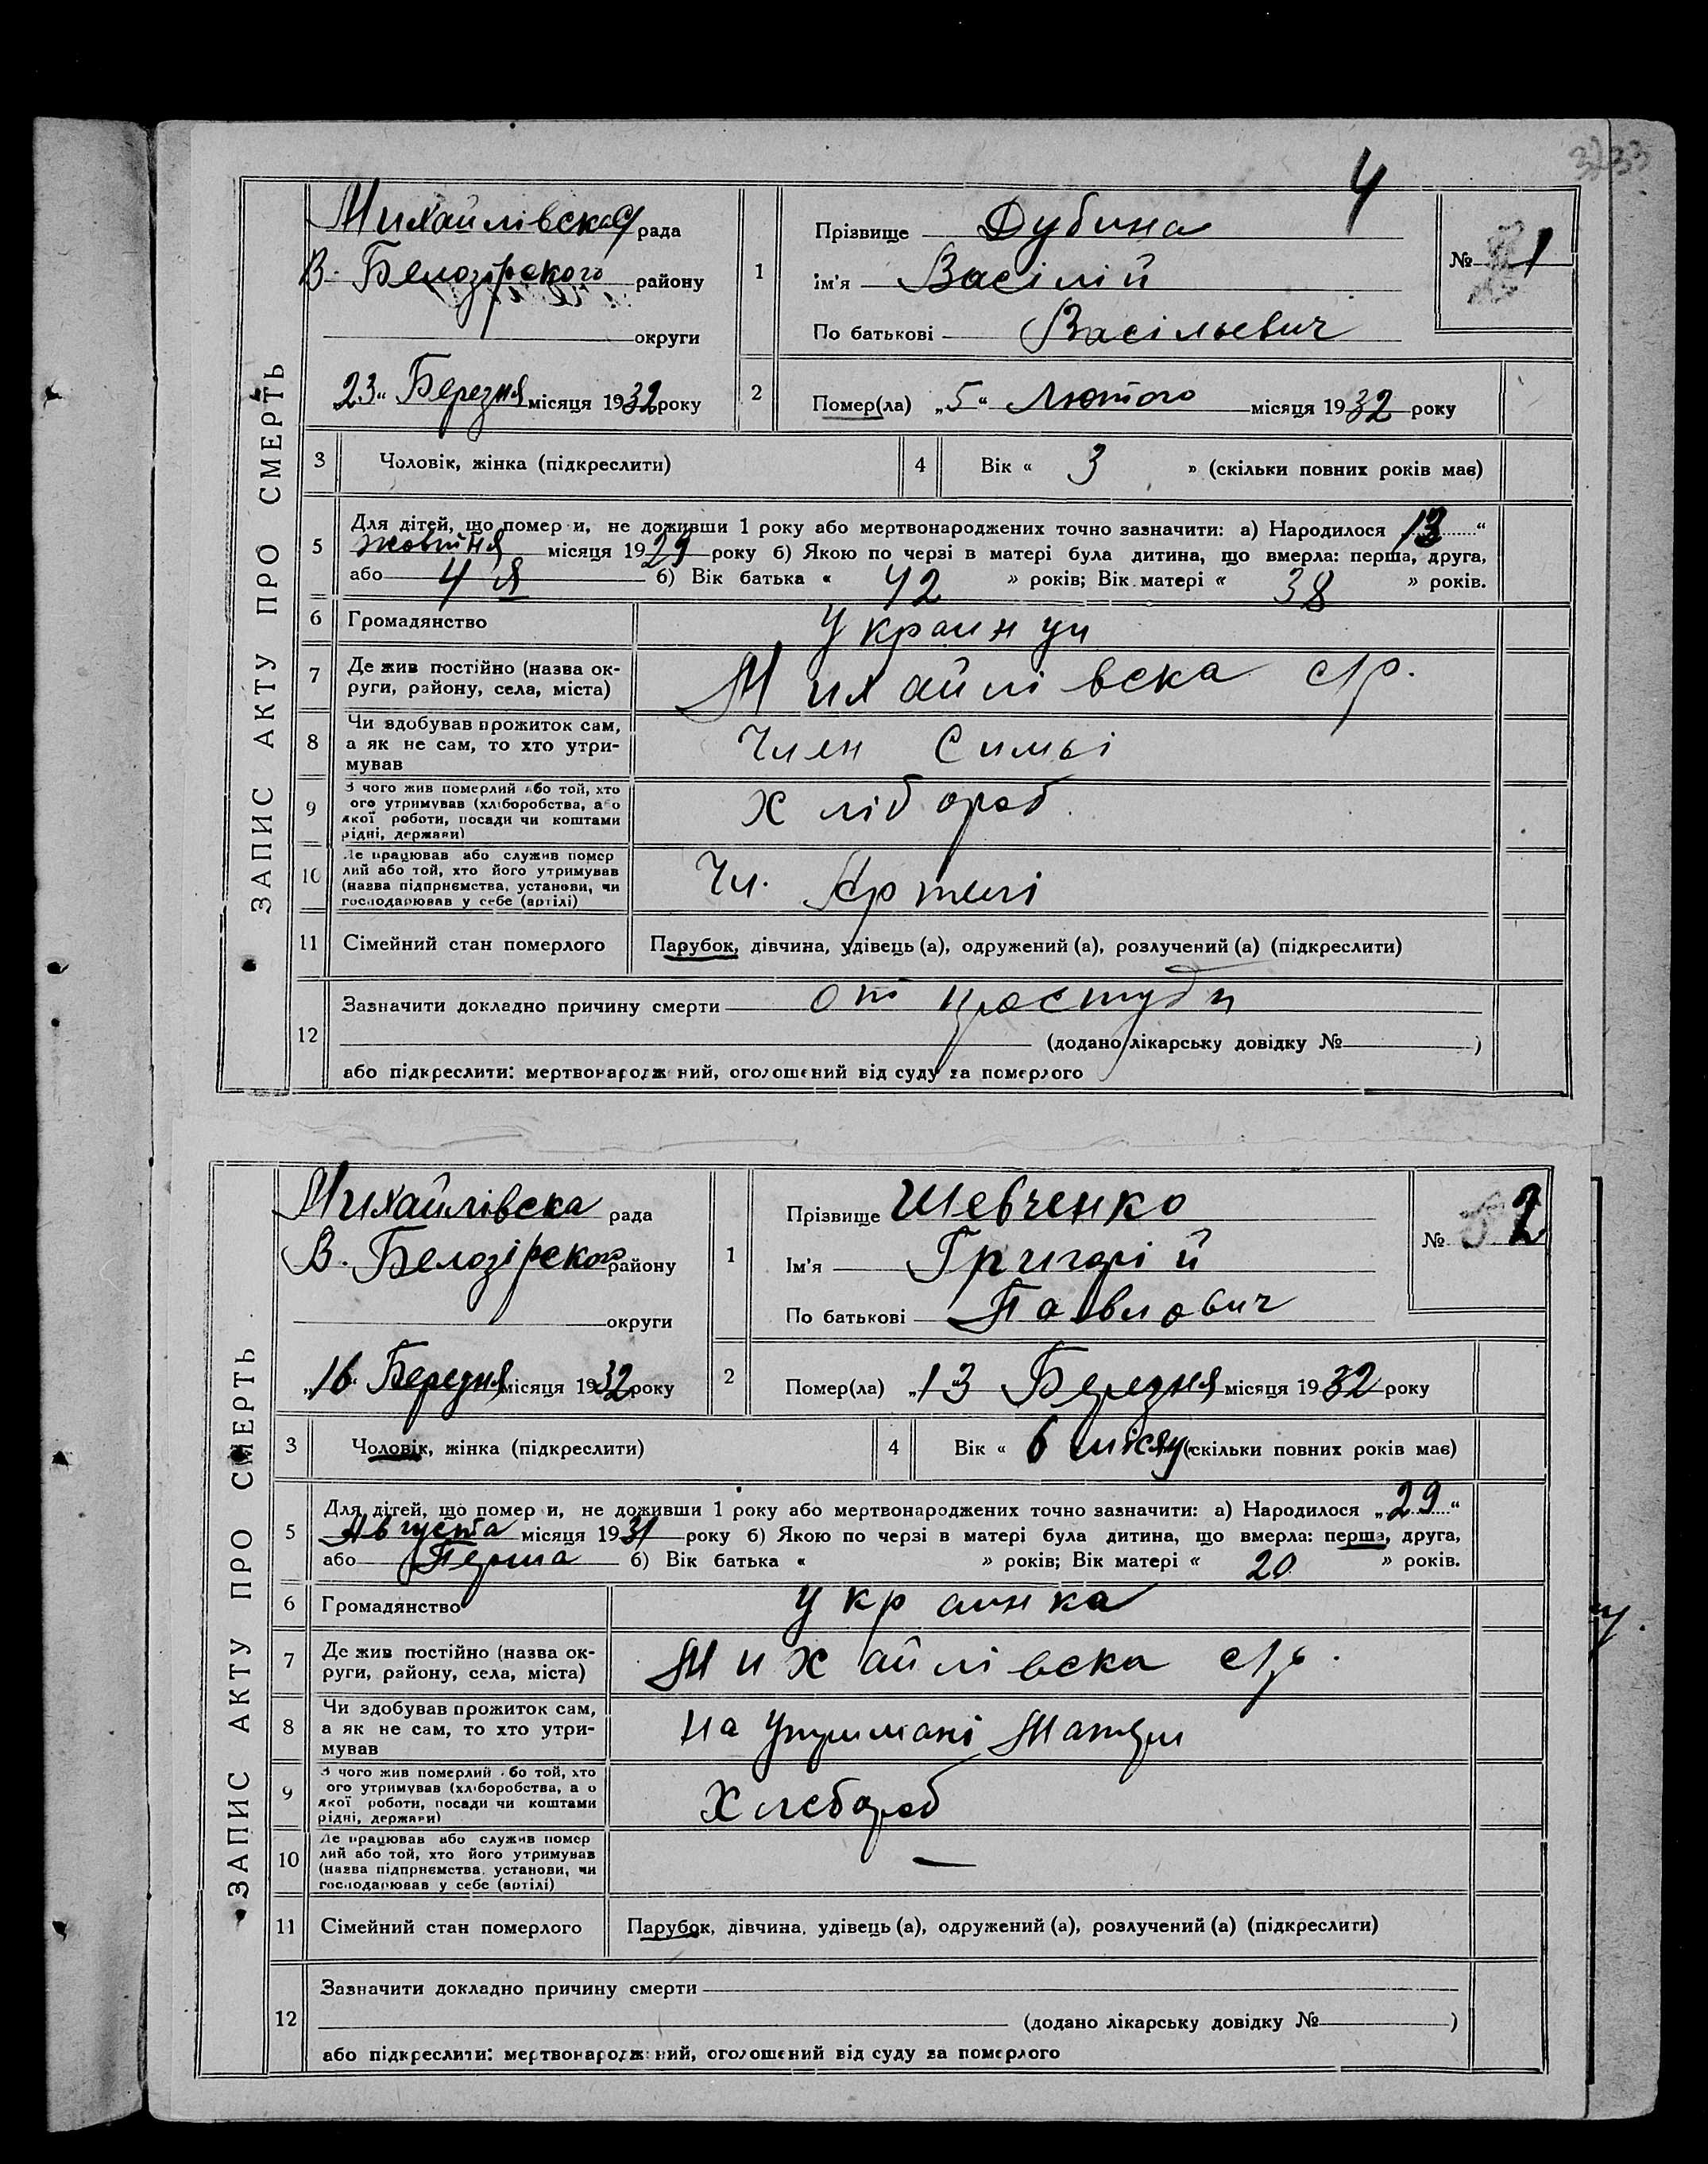 3233
4
ЗАПИС АКТУ ПРО СМЕРТЬ
Михайлівская рада
В. Белозірского району
округи
„23“ Березня місяця 1932 року
1
Прізвище Дубина
ім'я Васілій
По батькові Васільевич
№ 1
2
Помер(ла) „5“ Лютого місяця 1932 року
3 Чоловік, жінка (підкреслити)
4 Вік « 3 » (скільки повних років має)
5 Для дітей, що помер и, не доживши 1 року або мертвонароджених точно зазначити: а) Народилося „13“
жовтня місяця 1929 року б) Якою по черзі в матері була дитина, що вмерла: перша, друга,
або 4 я б) Вік батька « 42 » років; Вік матері « 38 » років.
6 Громадянство Украинци
7 Де жив постійно (назва ок-
руги, району, села, міста) Михайлівска с/р.
8 Чи здобував прожиток сам,
а як не сам, то хто утри-
мував Член Симьі
9 З чого жив померлий або той, хто
ого утримував (хліборобства, або
якої роботи, посади чи коштами
рідні, держави) Хлібороб
10 Де працював або служив помер
лий або той, хто його утримував
(назва підприємства, установи, чи
господарював у себе (артілі) Чл. Артелі
11 Сімейний стан померлого Парубок, дівчина, удівець (а), одружений (а), розлучений (а) (підкреслити)
12 Зазначити докладно причину смерти от простуди
(додано лікарську довідку № )
або підкреслити: мертвонародж ний, оголошений від суду за померлого
ЗАПИС АКТУ ПРО СМЕРТЬ
Михайлівска рада
В. Белозірского району
округи
„16“ Березня місяця 1932 року
1
Прізвище Шевченко
Ім'я Григорій
По батькові Павлович
№ 2
2
Помер(ла) „13 Березня місяця 1932 року
3 Чоловік, жінка (підкреслити)
4 Вік « 6 місяц (скільки повних років має)
5 Для дітей, що помер и, не доживши 1 року або мертвонароджених точно зазначити: а) Народилося „29“
Августа місяця 1931 року б) Якою по черзі в матері була дитина, що вмерла: перша, друга,
або Перша б) Вік батька « » років; Вік матері « 20 » років.
6 Громадянство Украинка
7 Де жив постійно (назва ок-
руги, району, села, міста) Михайлівска с/р.
8 Чи здобував прожиток сам,
а як не сам, то хто утри-
мував на утримані Матери
9 З чого жив померлий або той, хто
ого утримував (хліборобства, а о
якої роботи, посади чи коштами
рідні, держави) Хлебороб
10 Де працював або служив помер
лий або той, хто його утримував
(назва підприємства, установи, чи
господарював у себе (артілі) —
11 Сімейний стан померлого Парубок, дівчина, удівець (а), одружений (а), розлучений (а) (підкреслити)
12 Зазначити докладно причину смерти
(додано лікарську довідку № )
або підкреслити: мертвонародж ний, оголошений від суду за померлого